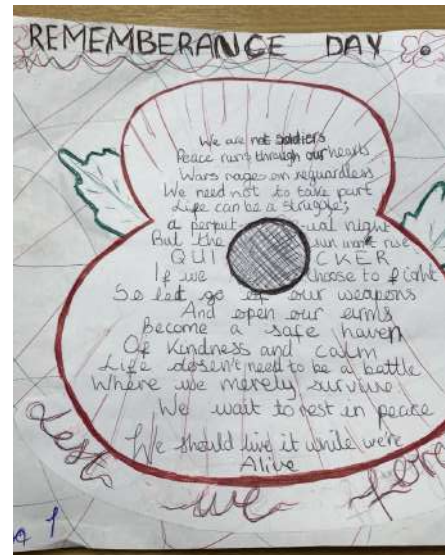 REMEMBERANCE DAY
We are not soldiers
Peace runs through our hearts
Wars rages on reguardless
We need not to take part
Life can be a struggle;
a perput ual night
But the sun won't rise
QUI CKER
If we choose to fight
So let go of our weapons
And open our arms
Become a safe haven
Of Kindness and calm
Life dosen't need to be a battle
Where we merely survive
We wait to rest in peace
We should live it while we're
Alive
Lest we for